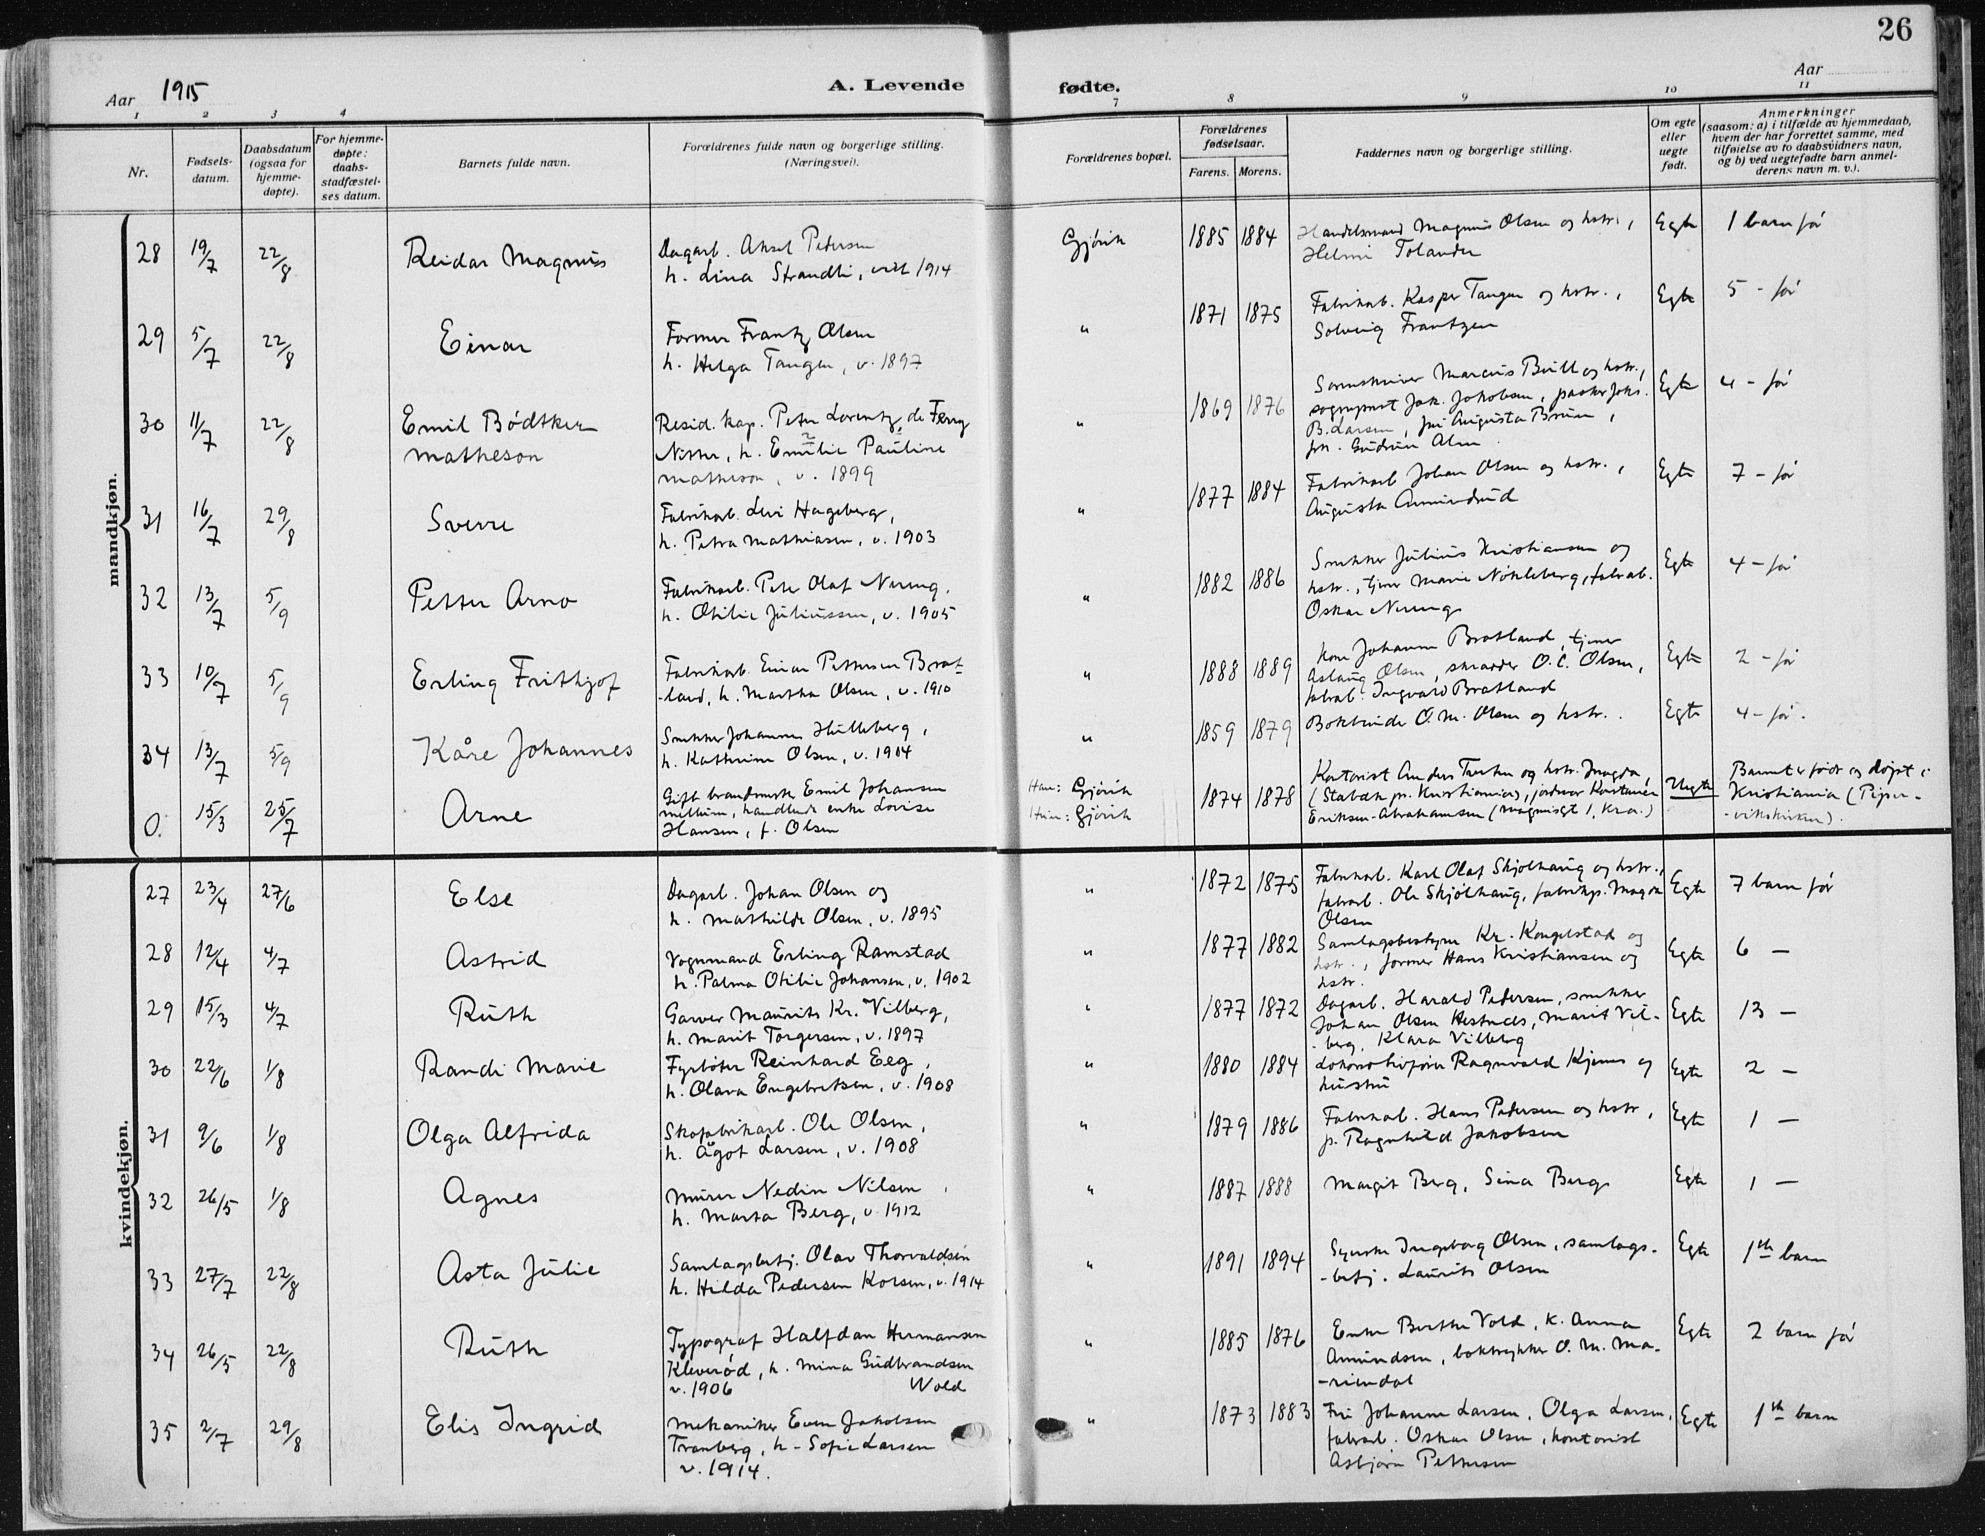 26
Aar 1915
A. Levende fødte.
Aar
1 2 3 4 7 8 9 10 11
Nr.
Fødsels-
datum.
Daabsdatum
(ogsaa for
hjemme-
døpte).
For hjemme-
døpte:
daabs-
stadfæstel-
ses datum.
Barnets fulde navn.
Forældrenes fulde navn og borgerlige stilling.
(Næringsvei).
Forældrenes bopæl.
Forældrenes
fødselsaar.
Farens. Morens.
Faddernes navn og borgerlige stilling.
Om egte
eller
uegte
født.
Anmerkninger
(saasom: a) i tilfælde av hjemmedaab,
hvem der har forrettet samme, med
tilføielse av to daabsvidners navn,
og b) ved uegtefødte barn anmel-
derens navn m. v.).
mandkjøn.
28 19/7 22/8 Reidar Magnus
Dagarb. Aksel Petersen
h. Lina Strandli, viet 1914
Gjøvik 1885 1884
Handelsmand Magnus Olsen og hstr.,
Helmi Tolander
Egte 1 barn før
29 5/7 22/8 Einar
Former Frantz Olsen
h. Helga Tangen, v. 1897
" 1871 1875
Fabrikarb. Kasper Tangen og hstr.,
Solveig Frantzen
Egte 5 - før
30 11/7 22/8 Emil Bødtker
Matheson
Resid. kap. Peter Lorentz de Ferry
Nitter, h. Emilie Pauline
Matheson, v. 1899
" 1869 1876
Sorenskriver Marcus Bull og hstr.,
sogneprest Jak. Jakobsen, Johs.
B. Larsen, fru Augusta Bruun,
frk. Gudrun Alm
Egte 4 - før
31 16/7 29/8 Sverre
Fabrikarb. Levi Hageberg,
h. Petra Mathiasen, v. 1903
" 1877 1884
Fabrikarb Johan Olsen og hstr.,
Augusta Amundrud
Egte 7 - før
32 13/7 5/9 Petter Arno
Fabrikarb. Peter Olaf Nereng,
h. Otilie Juliussen, v. 1905
" 1882 1886
Snekker Julius Kristiansen og
hstr., tjener Marie Nøkleberg, fabrab.
Oskar Nereng
Egte 4 - før
33 10/7 5/9 Erling Frithjof
Fabrikarb. Einar Pettersen Brat-
-land, h. Martha Olsen, v. 1910
" 1888 1889
kone Johanne Bratland, tjener
Aslaug Olsen, skrædder O. C. Olsen,
fabrab. Ingvald Bratland
Egte 2 - før
34 13/7 5/9 Kåre Johannes
Snekker Johannes Hilleberg,
h. Kathrine Olsen, v. 1904
" 1859 1879
Bokbinder O. M. Olsen og hstr.
Egte 4 - før.
0. 15/3 25/7 Arne
Gift brandmester Emil Johansen
Mellum, handlende enke Lovise
Hansen, f. Olsen
Han: Gjøvik
Hun: Gjøvik
1874 1878
Kontorist Anders og hstr. Magda,
(Stabæk pr. Kristiania), jordmor
Eriksen-Abrahamsen ( 1, Kra.)
Uegte
Barnet er født og døpt i
Kristiania (Piper-
-vikskirken).
kvindekjøn.
27 23/4 27/6 Else
Dagarb. Johan Olsen og
h. Mathilde Olsen, v. 1895
" 1872 1875
Fabrikarb. Karl Olaf Skjølhaug og hstr.,
fabrarb. Ole Skjølhaug, fabrikp. Magda
Olsen
Egte 7 barn før
28 12/4 4/7 Astrid
Vognmand Erling Ramstad
h. Palma Otilie Johansen, v. 1902
" 1877 1882
Samlagsbestyrer Kr. Kongelstad og
hstr., former Hans Kristiansen og
hstr.
Egte 6 —
29 15/3 4/7 Ruth
Garver Maurits Kr. Vilberg,
h. Marit Torgersen, v. 1897
" 1877 1872
Dagarb. Harald Pedersen, snekker
Johan Olsen, Marit Vil-
-berg, Klara Vilberg
Egte 13 —
30 22/6 1/8 Randi Marie
Fyrbøter Reinhard Eeg,
h. Olava Engebretsen, v. 1908
" 1880 1884
Lokomotivfører Ragnvald Kjenes og
hustru
Egte 2 —
31 9/6 1/8 Olga Alfrida
Skofabrikarb. Ole Olsen,
h. Ågot Larsen, v. 1908
" 1879 1886
Fabrikarb. Hans Pedersen og hstr,
p. Ragnhild Jakobsen
Egte 1 —
32 26/5 1/8 Agnes
Murer Nedin Nilsen,
h. Marta Berg, v. 1912
" 1887 1888
Margit Berg, Sina Berg
Egte 1 —
33 27/7 22/8 Asta Julie
Samlagsbetj. Olav Thorvaldsen
h. Hilda Pedersen Korsen, v. 1914
" 1891 1894
Syerske Ingeborg Olsen, samlags-
-betj. Laurits Olsen
Egte 1ste barn
34 26/5 22/8 Ruth
Typograf Halfdan Hermansen
Kleverød, h. Mina Gudbrandsen
v. 1906 Wold
" 1885 1876
Enke Berthe Vold, k. Anna
Amundsen, boktrykker O. M. Ma-
-riendal
Egte 2 barn før
35 2/7 29/8 Elis Ingrid
Mekaniker Even Jakobsen
Tranberg, h - Sofie Larsen
v. 1914.
" 1873 1883
Fru Johanne Larsen, Olga Larsen,
fabrarb. Oskar Olsen, kontorist
Asbjørn Pettersen
Egte 1ste barn